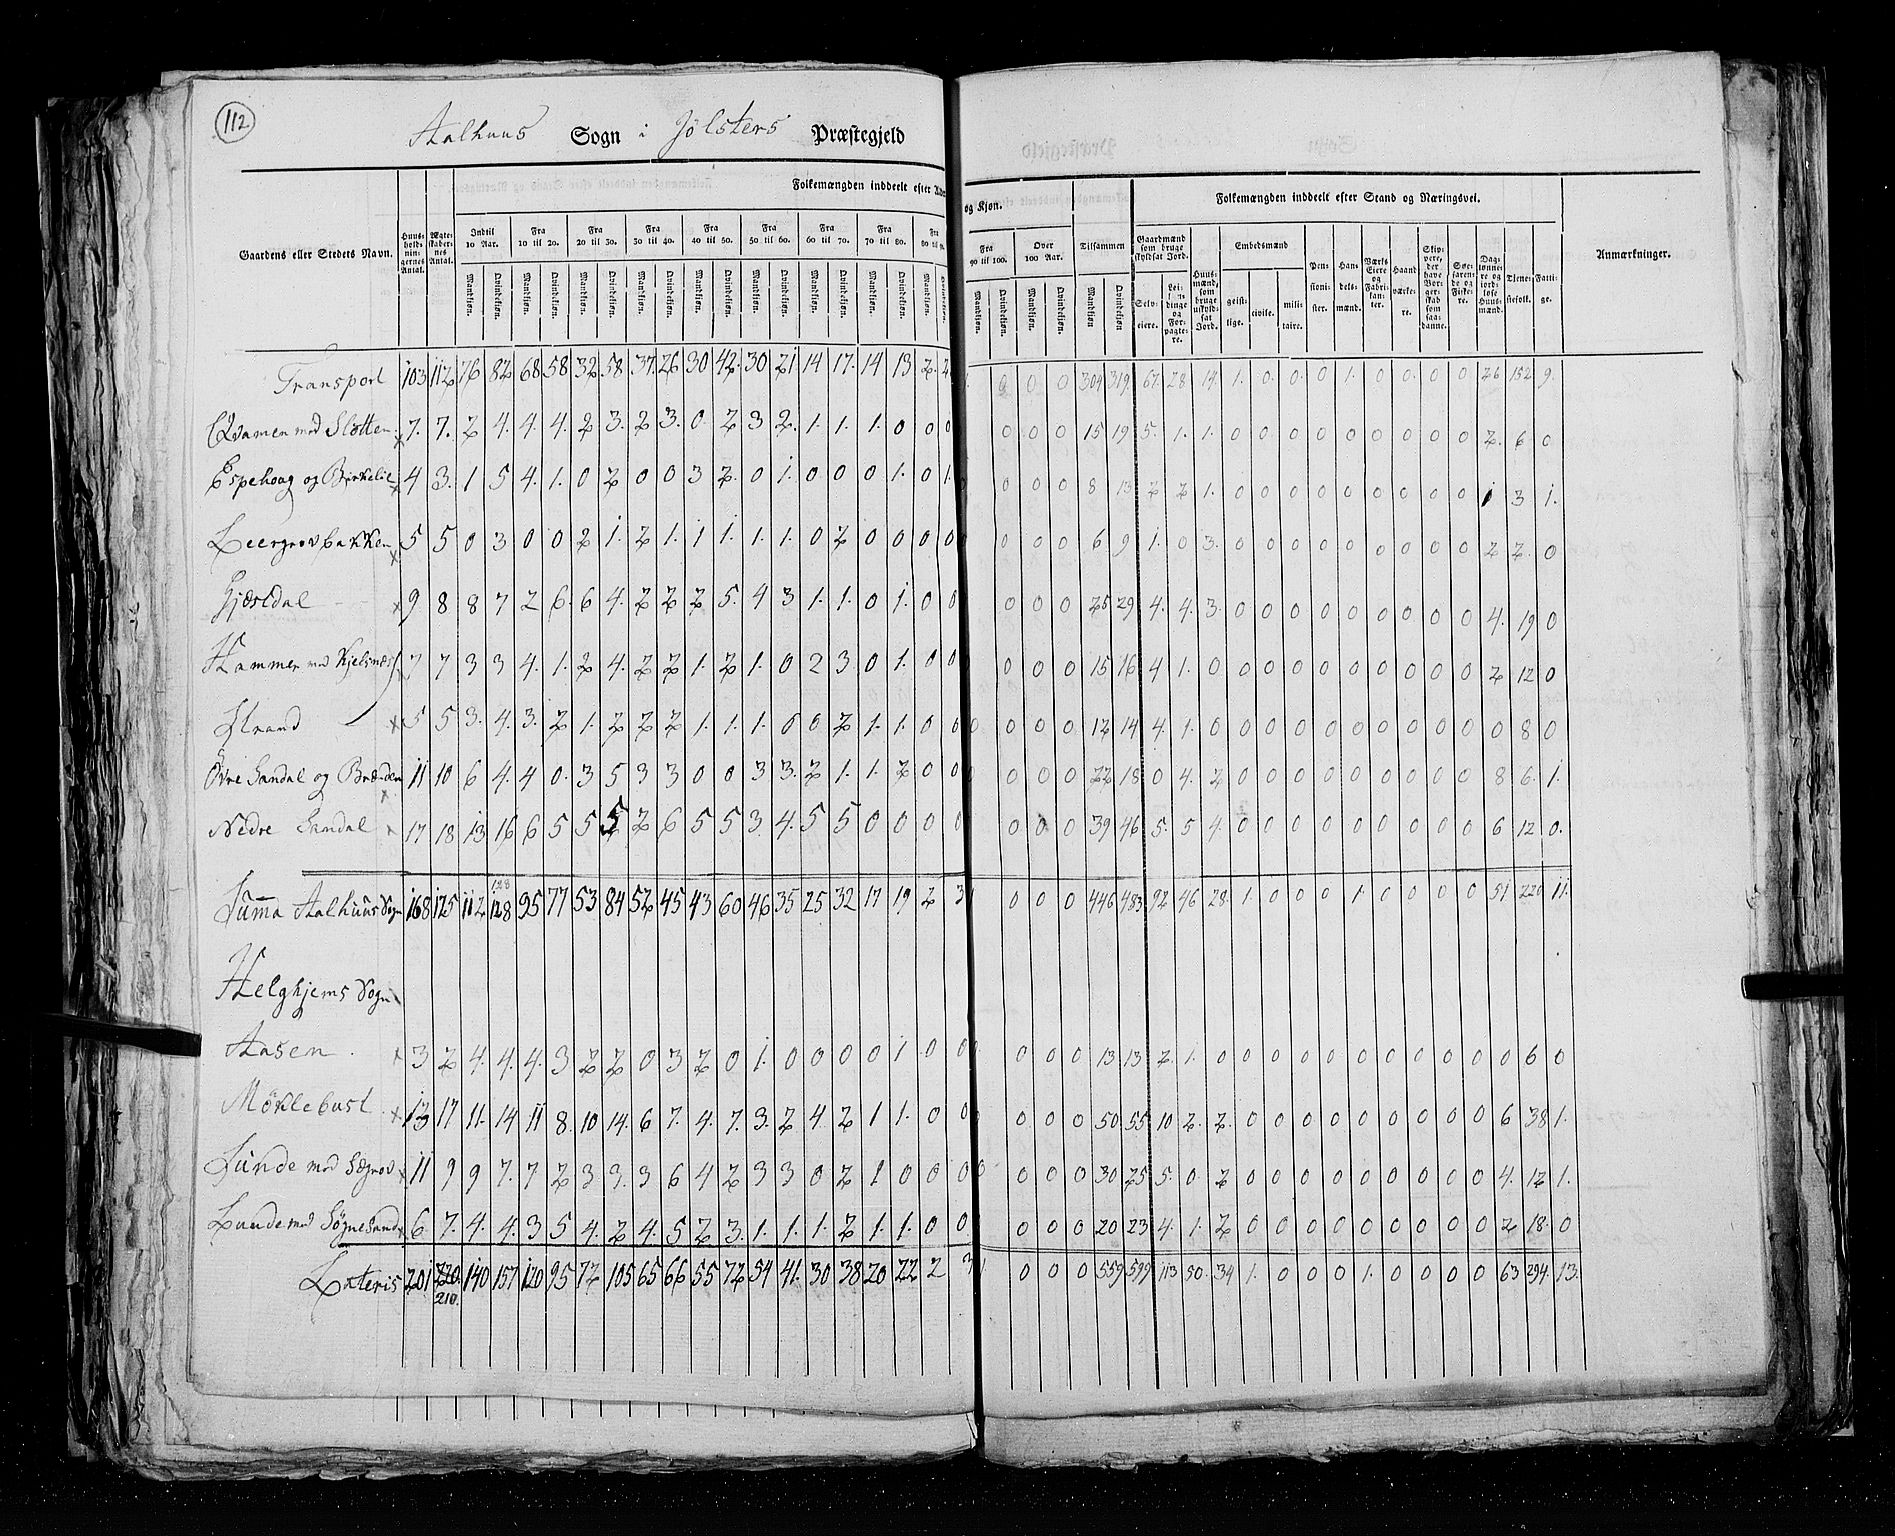 112
Aalhuus Sogn i Jölsters Præstegjeld
Folkemængden inddeelt efter Alder og Kjøn.
Folkemængden inddeelt efter Stand og Næringsvei.
Gaardens eller Stedets Navn. Huusholdningernes Antal. Ægteskabernes Antal. Indtil 10 Aar. Fra 10 til 20. Fra 20 til 30. Fra 30 til 40. Fra 40 til 50. Fra 50 til 60. Fra 60 til 70. Fra 70 til 80. Fra 80 til 90. Fra 90 til 100. Over 100 Aar. Tilsammen Gaardmænd som bruge skyldsat Jord. Huusmænd, som bruge uskyldsat Jord. Embedsmænd Pensionister. Handelsmænd. Værks Eiere og Fabrikanter. Haandværkere. Skippere, der have Borgerskab som saadanne. Søefarende og Fiskere. Daglønnere og jordløse Huusmænd. Tjenestefolk. Fattige. Anmærkninger.
Mandkjøn. Qvindekjøn. Mandkjøn. Qvindekjøn. Mandkjøn. Qvindekjøn. Mandkjøn. Qvindekjøn. Mandkjøn. Qvindekjøn. Mandkjøn. Qvindekjøn. Mandkjøn. Qvindekjøn. Mandkjøn. Qvindekjøn. Mandkjøn. Qvindekjøn. Mandkjøn. Qvindekjøn. Mandkjøn. Qvindekjøn. Mandkjøn. Qvindekjøn Selveiere. Leilændinge og Forpagtere. geistlige. civile. militaire.
Transport 103 112 76 82 68 58 32 58 37 26 30 42 30 21 14 17 14 13 2 2 0 0 0 304 319 67 28 14 1. 0. 0. 0 1. 0 0 0 0 26 152 9.
Qvamen med Slotten 7. 7. 2 4. 4. 4. 2 3. 2 3. 0 2 3 2. 1. 1. 1. 0 0 0 0 0 0 15 19 5. 1. 1. 0 0 0 0 0 0 0 0 0 2. 6 0
Espehoug og Birkelie 4 3. 1 5 4. 1. 0 2 0 0 3 2. 0 1. 0 0 0 1. 0 1. 0 0 0 8 13 2 2 1. 0 0 0 0 0 0 0 0 0 1 3 1.
Leergrovbakken 5 5 0 3 0 0 2 1. 2 1. 1 1. 1. 1. 0 2 0 0 0 0 0 0 0 6 9 1. 0 3. 0 0 0 0 0 0 0 0 0 2 2. 0
Gjæsldal 9 8 8 7 2 6. 6 4. 2 2 2 5. 4 3 1. 1. 0 1. 0 0 0 0 0 25 29 4. 4. 3. 0 0 0 0 0 0 0 0 0 4. 19 0
Hammer med Kjelsnæs 7 7 3 3 4. 1. 2 4. 2 2 1. 2 1. 0 2 3 0 1. 0 0 0 0 0 15 16 4 1. 0 0 0 0 0 0 0 0 0 0 2 12 0
Strand 5 5 3. 4. 3. 2 1. 2 2 2 1. 1. 1. 0 0 2 1. 1. 0 0 0 0 0 0 12 14 4. 1. 0 0 0 0 0 0 0 0 0 0 0 8 0
Övre Sandal og Brænden 11 10 6 4. 4 0. 3 5 3 3 0 0 3 3. 2 1. 1. 2 0 0 0 0 0 22 18 0 4. 2 0 0 0 0 0 0 0 0 0 8 6. 1.
Nedre Sandal 17 18 13 16 6 5 5 5 2 6 5 5 3. 4. 5 5 0 0 0 0 0 0 0 39 46 5. 5 4. 0 0 0 0 0 0 0 0 0 6 12 0.
128
Summa Aalhuus Sogn 168 175 112 128 95 77 53 84 52 45 43 60 46 35 25 32 17 19 2 3 1 0 0 0 446 483 92 46 28. 1. 0 0 0 1. 0 0 0 0 51 220 11.
Helghjems Sogn
Aasen 3 2 4. 4. 4. 3 2 2 0 3 2 0 1. 0 0 0 0 1 0 0 0 0 0 13 13 2. 1. 0 0 0 0 0 0 0 0 0 0 0 6 0
Möklebust 13 17 11. 14 11 8. 10 14. 6 7. 4. 7. 3. 2 4. 2 1 1. 0 0 0 0 0 50 55 10 2. 2. 0 0 0 0 0 0 0 0 0 6 38 1.
Sunde med Sægrov 11 9 9 7. 7 2 3 3. 3 6 4 2 3 3 0 2 1 0 0 0 0 0 0 0 30 25 5. 0. 2 0 0 0 0 0 0 0 0 0 4. 12 1.
Lunde med Sögnesand 6 7. 4. 4. 3 5 4. 2 4. 5 2 3. 1. 1. 1. 2 1. 1. 0 0 0 0 0 20 23 4. 1. 2 0 0 0 0 0 0 0 0 0 2 18. 0
Lateris 201 220 140 157 120 95 72 105 65 66 55 72 54 41. 30 38 20 22 2 3 1. 0 0 0 559 599 113 50. 34 1. 0 0 0 1. 0 0 0 0 63 294. 13.
210.